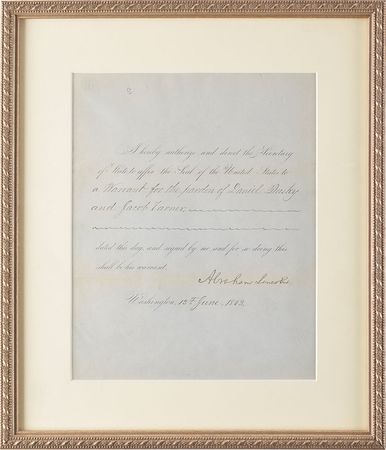 I hereby authorize and direct the Secretary
of State to affix the Seal of the United States to
a Warrant for the pardon of Daniel
and Jacob Varner,
dated this day, and signed by me and for so doing this
shall be his warrant.
Abraham Lincoln
Washington, 13th June, 1862.